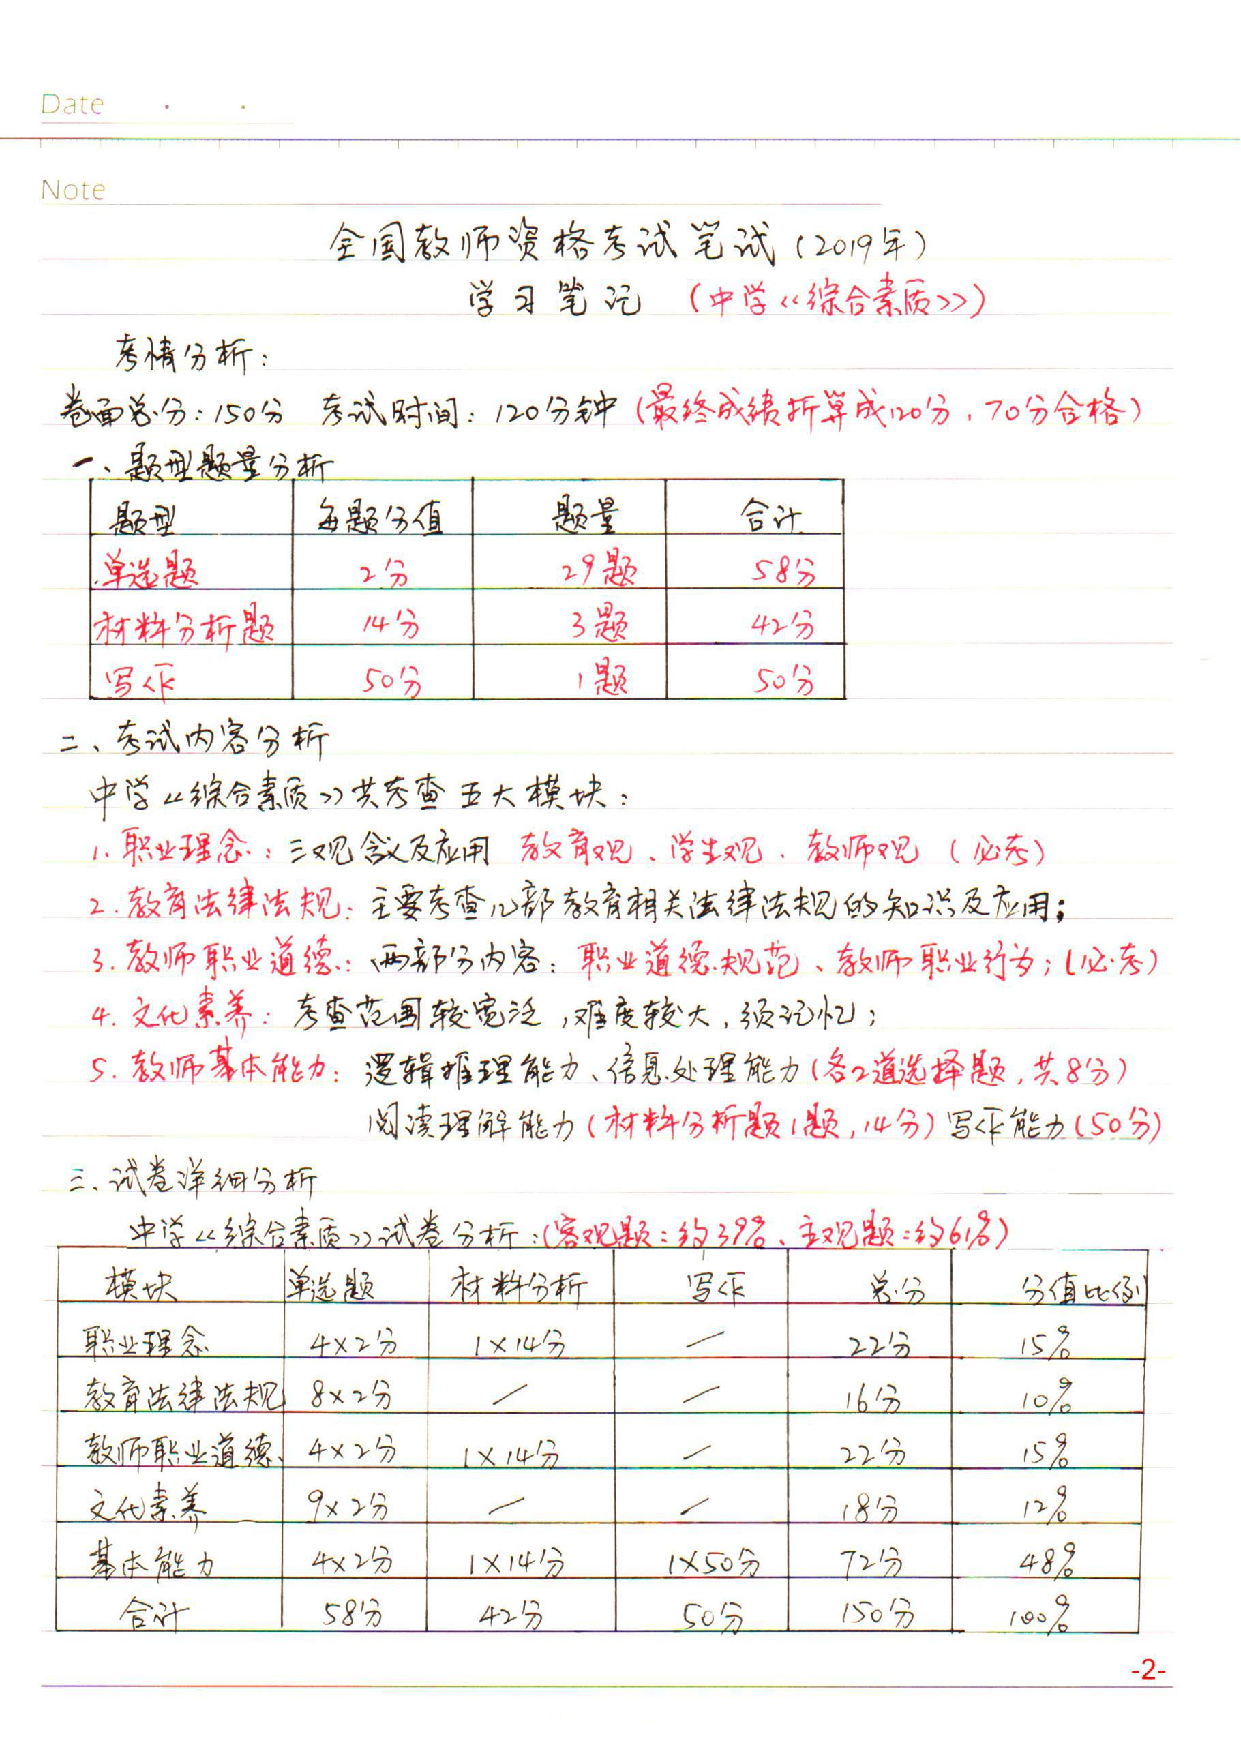 Date
Note
全国教师资格考试笔试(2019年)
学习笔记 (中学《综合素质》)
考情分析:
卷面总分:150分 考试时间:120分钟(最终成绩折算成120分,70分合格)
一、题型题量分析
题型 每题分值 题量 合计
单选题 2分 29题 58分
材料分析题 14分 3题 42分
写作 50分 1题 50分
二、考试内容分析
中学《综合素质》共考查五大模块:
1.职业理念:三观含义及应用 教育观、学生观、教师观(必考)
2.教育法律法规:主要考查几部教育相关法律法规的知识及应用;
3.教师职业道德:两部分内容:职业道德规范、教师职业行为;(必考)
4.文化素养:考查范围较宽泛,难度较大,须记忆;
5.教师基本能力:逻辑推理能力、信息处理能力(各2道选择题,共8分)
阅读理解能力(材料分析题1题,14分)写作能力(50分)
三、试卷详细分析
中学《综合素质》试卷分析:(客观题:约39%、主观题:约61%)
模块 单选题 材料分析 写作 总分 分值比例
职业理念 4×2分 1×14分 — 22分 15%
教育法律法规 8×2分 — — 16分 10%
教师职业道德 4×2分 1×14分 — 22分 15%
文化素养 9×2分 — — 18分 12%
基本能力 4×2分 1×14分 1×50分 72分 48%
合计 58分 42分 50分 150分 100%
-2-